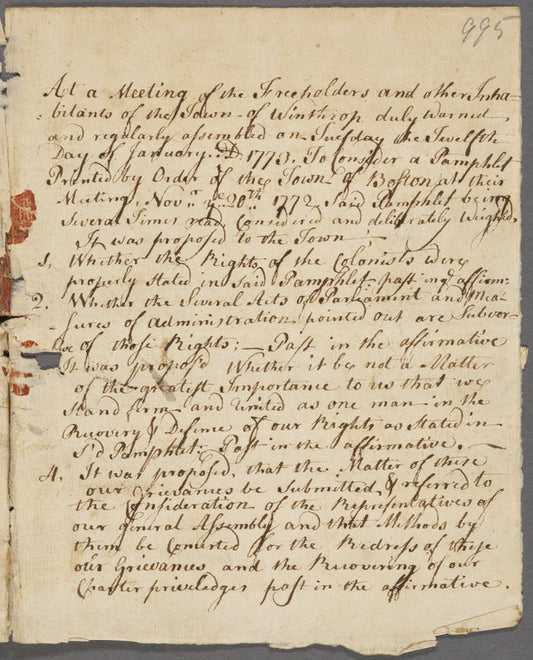 995
At a Meeting of the Freeholders and other Inha-
bitants of the Town of Winthrop duly warned
and regularly assembled on Tuesday the Twelfth
Day of January AD 1773, To Consider a Pamphlet
Printed by Order of the Town of Boston at their
Meeting, Novr ye 20th 1772 Said Pamphlet being
Several Times read, Considered and deliberately Weighed,
It was proposed to the Town —
1. Whether the Rights of the Colonists were
properly Stated in Said Pamphlet past in ye affirm-
2. Whether the Several Acts of Parliament and Mea-
sures of administration pointed out are Subver-
ive of those Rights; — Past in the affirmative
It was propos'd Whether it be not a Matter
of the greatest Importance to us that we
Stand firm and United as one man in the
Recovery & Defince of our Rights as Stated in
S'd Pamphlet. Past in the affirmative. —
4. It was proposed, that the Matter of these
our Grievances be Submitted, & referred to
the Consideration of the Representatives of
our general Assembly and that Methods by
them be Concerted for the Redress of these
our Grievances and the Recovering of our
Charter priviledges past in the affirmative.